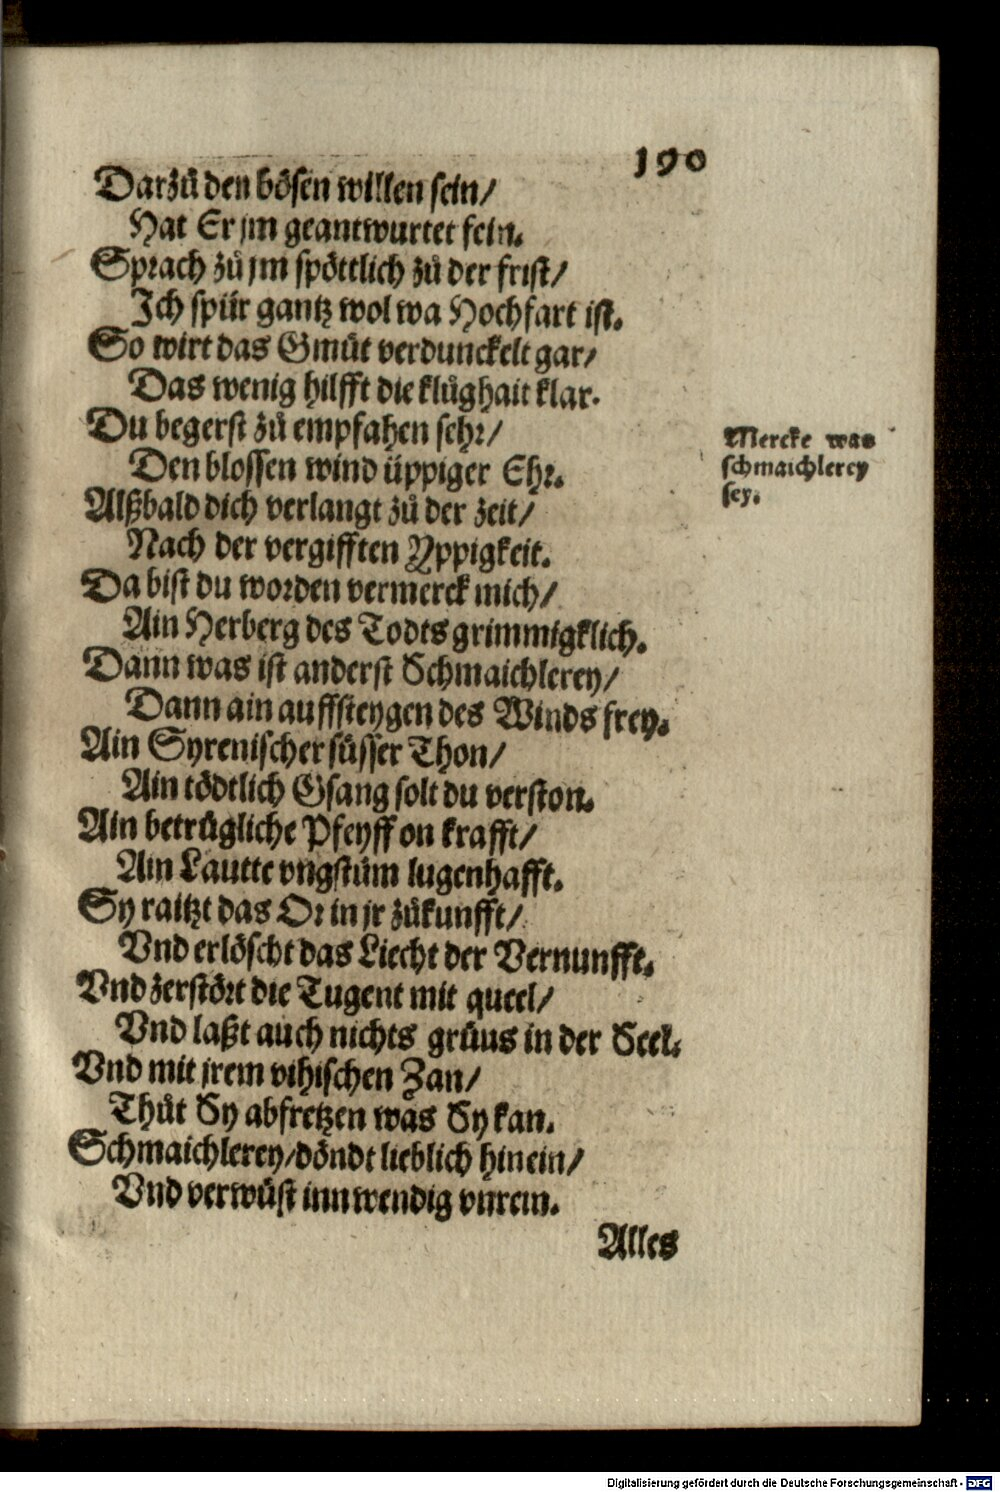 190
Darzů den bösen willen sein/
Hat Er jm geantwurtet fein.
Sprach zů jm spöttlich zů der frist/
Ich spür gantz wol wa Hochfart ist.
So wirt das Gmůt verdunckelt gar/
Das wenig hilfft die klůghait klar.
Du begerst zů empfahen sehr/
Den blossen wind üppiger Ehr.
Mercke was
schmaichlerey
sey.
Alßbald dich verlangt zů der zeit/
Nach der vergifften Yppigkeit.
Da bist du worden vermerck mich/
Ain Herberg des Todts grimmigklich.
Dann was ist anderst Schmaichlerey/
Dann ain auffsteygen des Winds frey.
Ain Syrenischer süsser Thon/
Ain tödtlich Gsang solt du verston.
Ain betrůgliche Pfeyff on krafft/
Ain Lautte vngstüm lugenhafft.
Sy raitzt das Or in jr zůkunfft/
Vnd erlöscht das Liecht der Vernunfft.
Vnd zerstört die Tugent mit queel/
Vnd laßt auch nichts grüns in der Seel.
Vnd mit jrem vihischen Zan/
Thůt Sy abfretzen was Sy kan.
Schmaichlerey/döndt lieblich hinein/
Vnd verwůst innwendig vnrein.
Alles
Digitalisierung gefördert durch die Deutsche Forschungsgemeinschaft - DFG